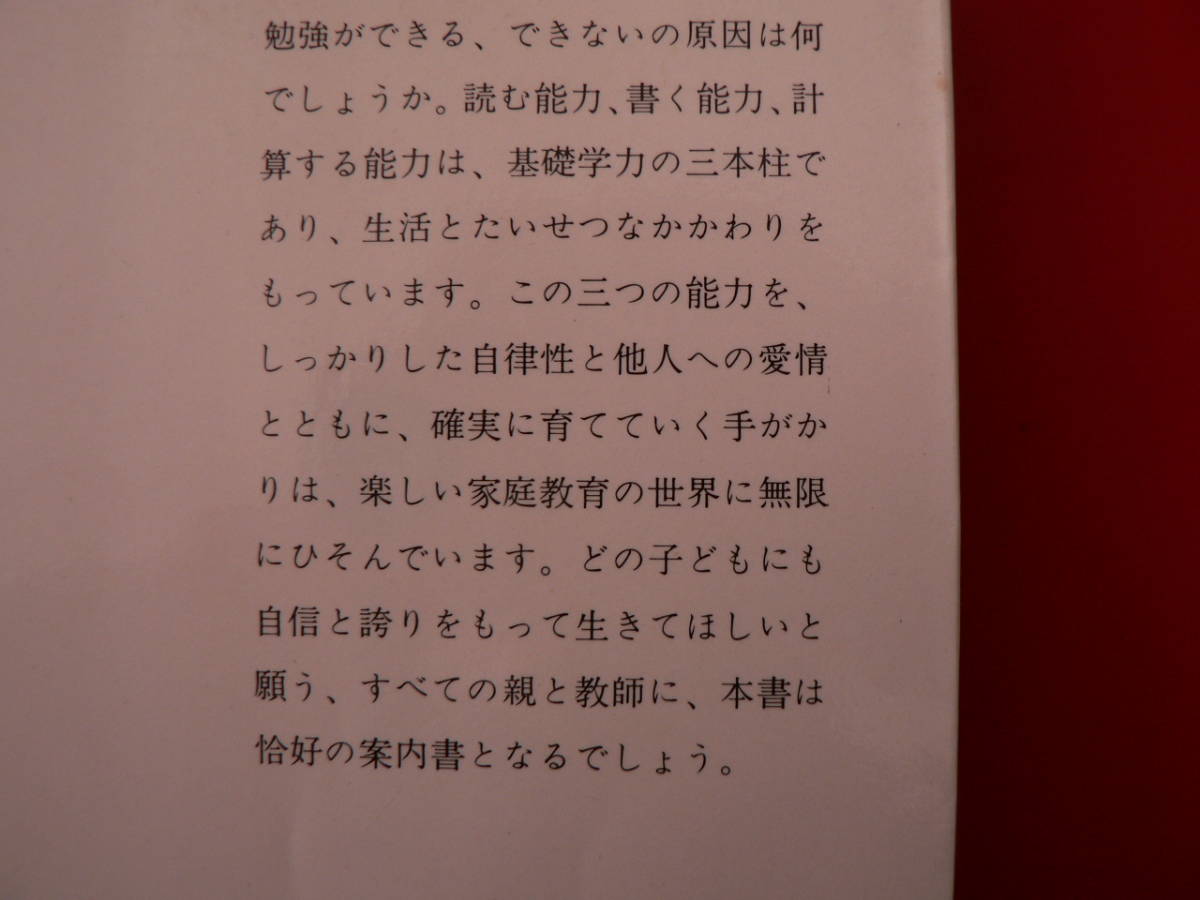 勉強ができる、できないの原因は何
でしょうか。読む能力、書く能力、計
算する能力は、基礎学力の三本柱で
あり、生活とたいせつなかかわりを
もっています。この三つの能力を、
しっかりした自律性と他人への愛情
とともに、確実に育てていく手がか
りは、楽しい家庭教育の世界に無限
にひそんでいます。どの子どもにも
自信と誇りをもって生きてほしいと
願う、すべての親と教師に、本書は
恰好の案内書となるでしょう。